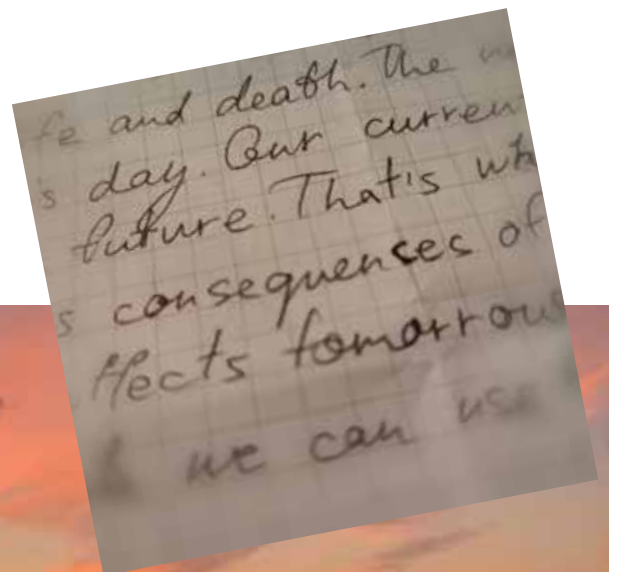 fe and death. The
s day. Our curren
future. That's wh
s consequences of
ffects tomorrow
we can use